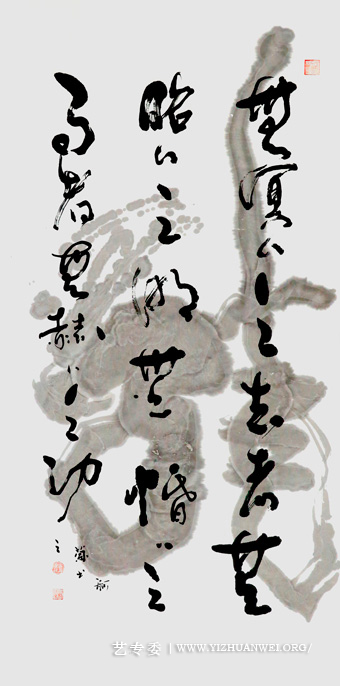 無冥〻之志者無
昭〻之明無惛〻之
事者無赫〻之功
艺专委 | WWW.YIZHUANWEI.ORG/